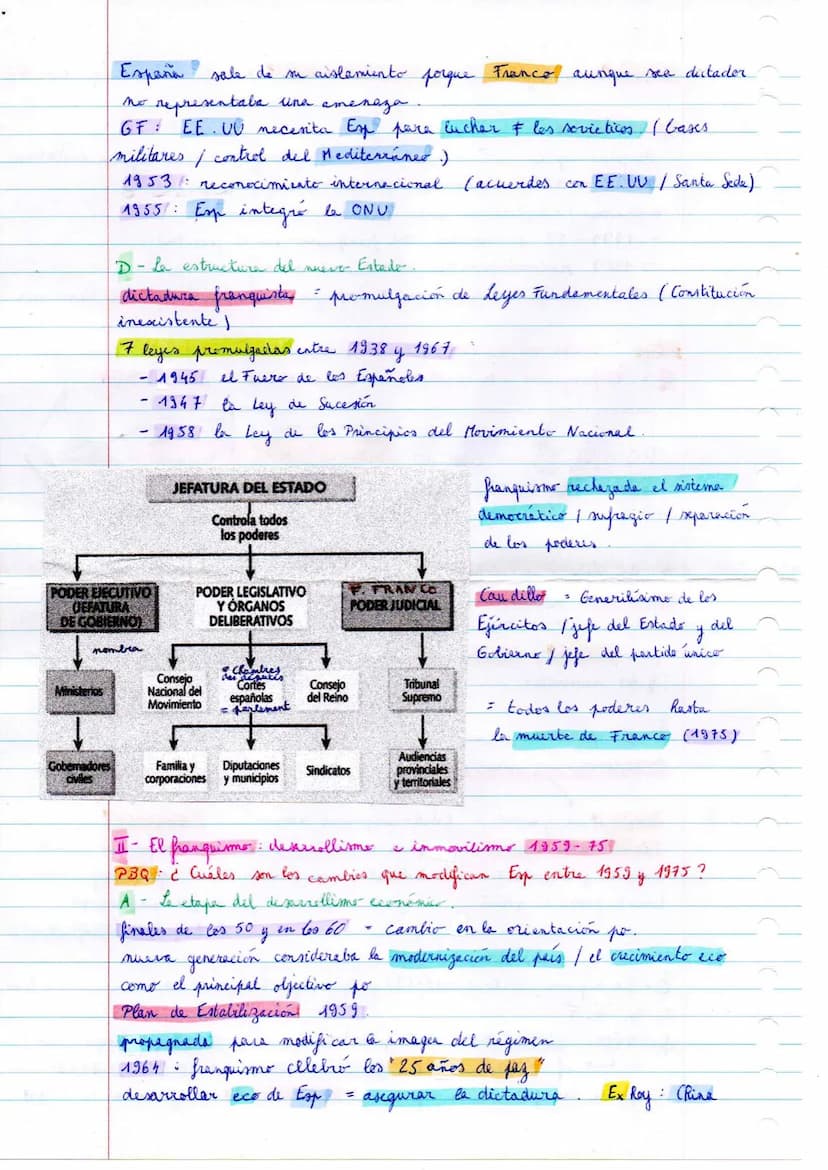 España sale de su aislamiento porque Franco aunque sea dictador
no representaba una amenaza.
GF : EE.UU necesita Esp para luchar ≠ los sovieticos (bases
militares / control del Mediterráneo.)
1953 : reconocimiento internacional (acuerdos con EE.UU / Santa Sede)
1955 : Esp integró la ONU
D - La estructura del nuevo Estado.
dictadura franquista = promulgación de Leyes Fundamentales (Constitución
inexistente)
7 leyes promulgadas entre 1938 y 1967 :
- 1945 el Fuero de los Españoles
- 1947 la Ley de Sucesión
- 1958 la Ley de los Principios del Movimiento Nacional.
JEFATURA DEL ESTADO
Controla todos
los poderes
PODER EJECUTIVO
(JEFATURA
DE GOBIERNO)
PODER LEGISLATIVO
Y ÓRGANOS
DELIBERATIVOS
F. FRANCO
PODER JUDICIAL
nombra
Ministerios
Consejo
Nacional del
Movimiento
= Chambres
des députés
Cortes
españolas
= parlement
Consejo
del Reino
Tribunal
Supremo
Gobernadores
civiles
Familia y
corporaciones
Diputaciones
y municipios
Sindicatos
Audiencias
provinciales
y territoriales
franquismo rechazada el sistema
democrático / sufragio / separación
de los poderes.
Caudillo = Generilísimo de los
Ejércitos / jefe del Estado y del
Gobierno / jefe del partido único
= todos los poderes hasta
la muerte de Franco (1975)
II - El franquismo : desarrollismo e inmovilismo 1959-75
PBQ : ¿ Cuáles son los cambios que modifican Esp entre 1959 y 1975 ?
A - La etapa del desarrollismo económico.
finales de los 50 y en los 60 = cambio en la orientación po.
nueva generación consideraba la modernización del país / el crecimiento eco
como el principal objectivo po
Plan de Estabilización 1959.
propagnada para modificar la imagen del régimen
1964 : franquismo celebró los "25 años de paz"
desarrollar eco de Esp = asegurar la dictadura. Ex Hoy : China